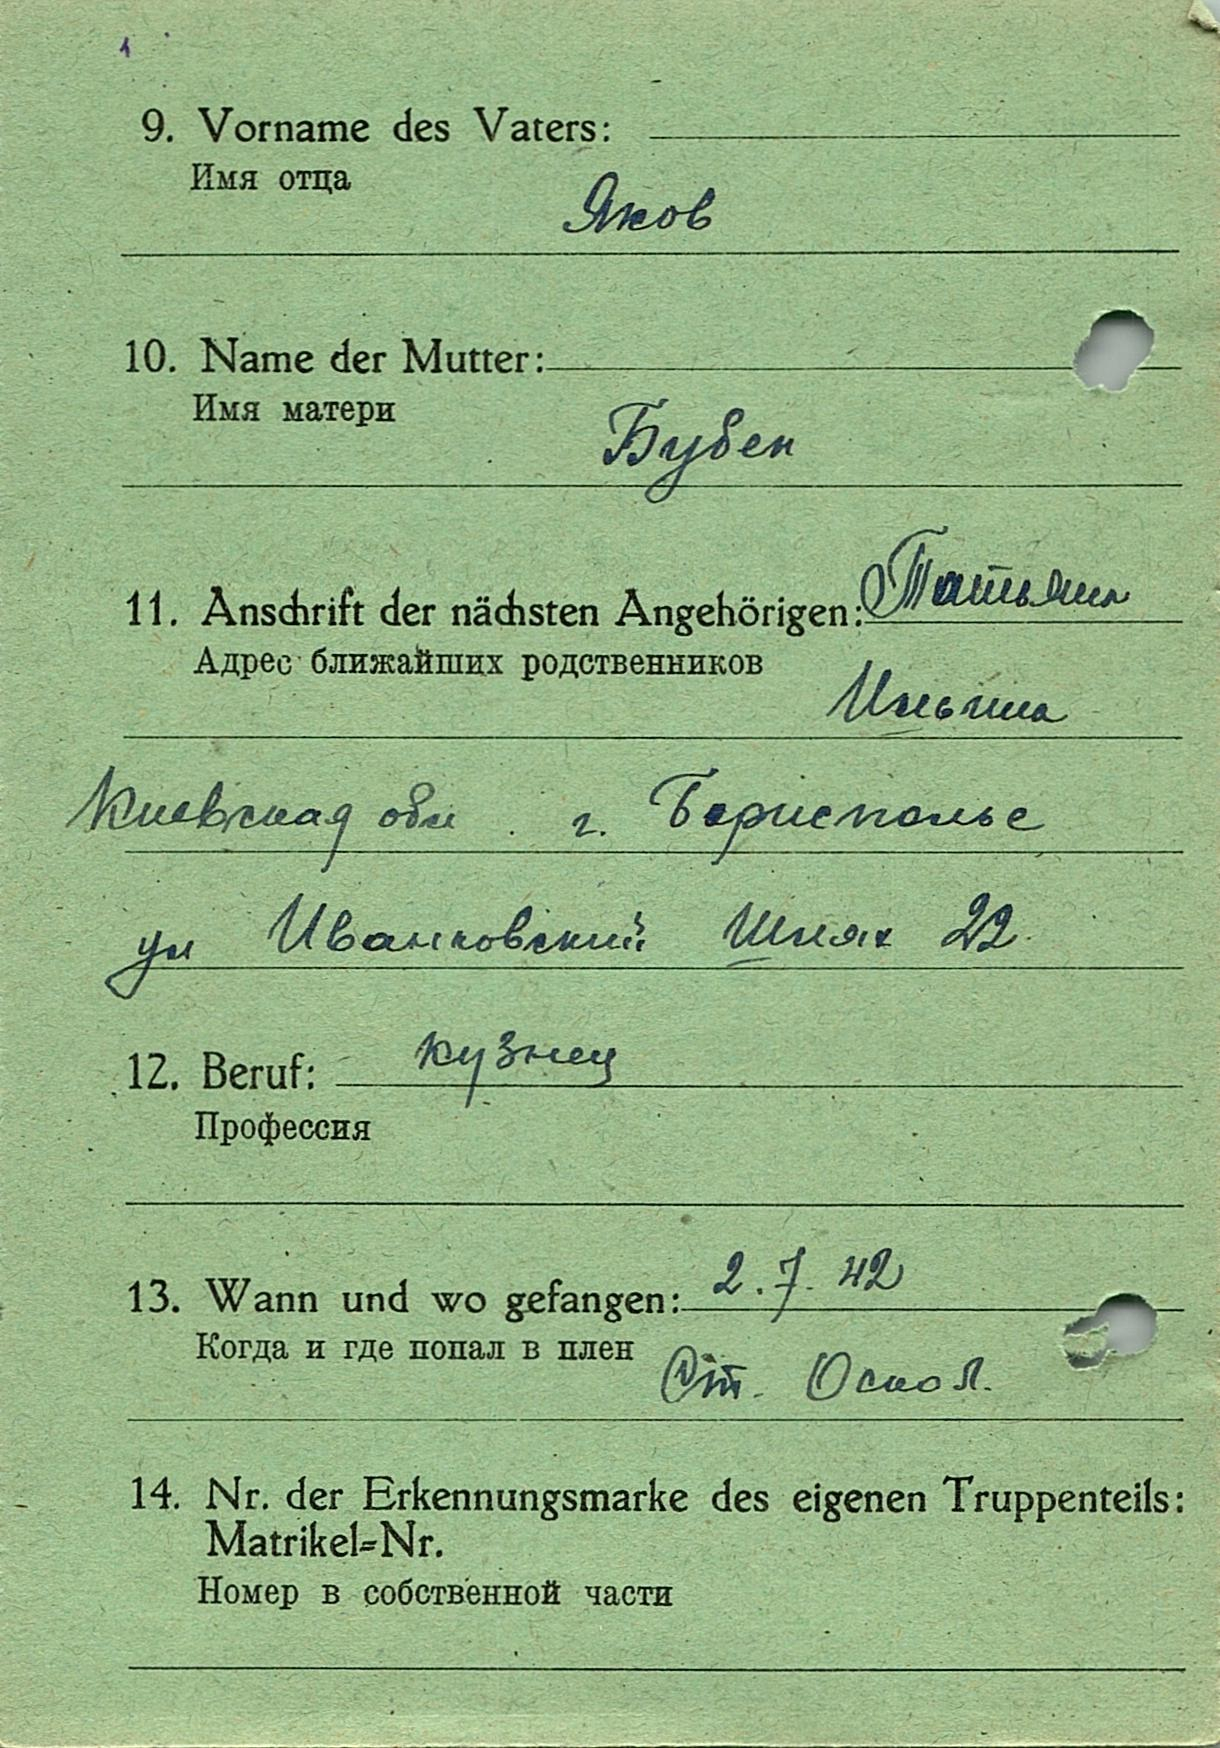 9. Vorname des Vaters:
Имя отца
Яков
10. Name der Mutter:
Имя матери
Бубен
Татьяна
11. Anschrift der nächsten Angehörigen:
Адрес ближайших родственников
Ильина
Киевская обл. г. Борисполье
ул Иванковский Шлях 22.
12. Beruf: кузнец
Профессия
13. Wann und wo gefangen: 2.7.42
Когда и где попал в плен
Ст. Оскол.
14. Nr. der Erkennungsmarke des eigenen Truppenteils:
Matrikel=Nr.
Номер в собственной части